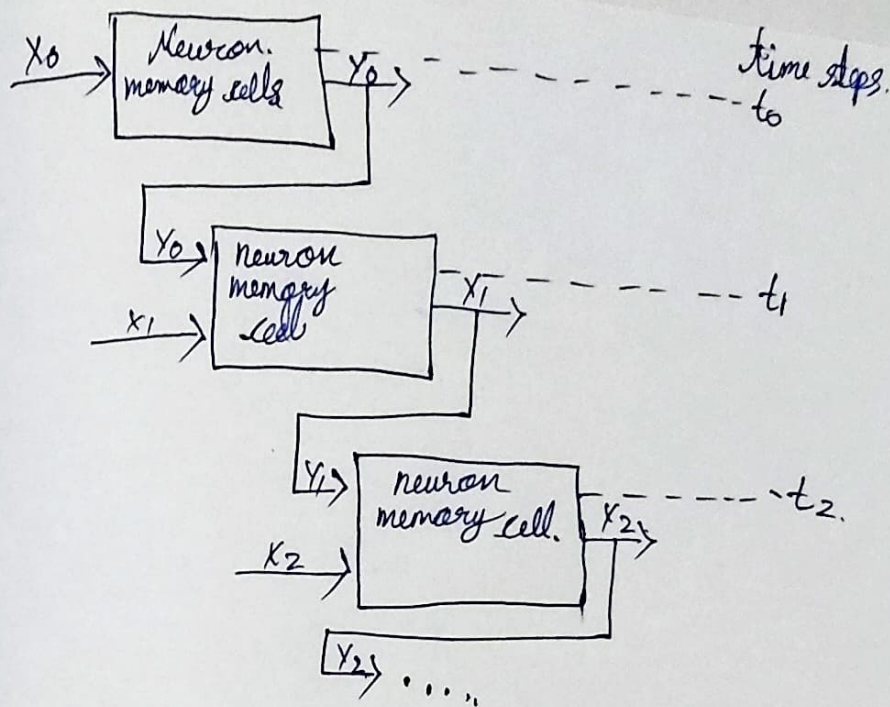 X0
Neuron.
memory cells
Y0
time steps.
t0
Y0
neuron
memory
cell
X1
X1
t1
Y1
neuron
memory cell.
X2
X2
t2.
Y2
.....